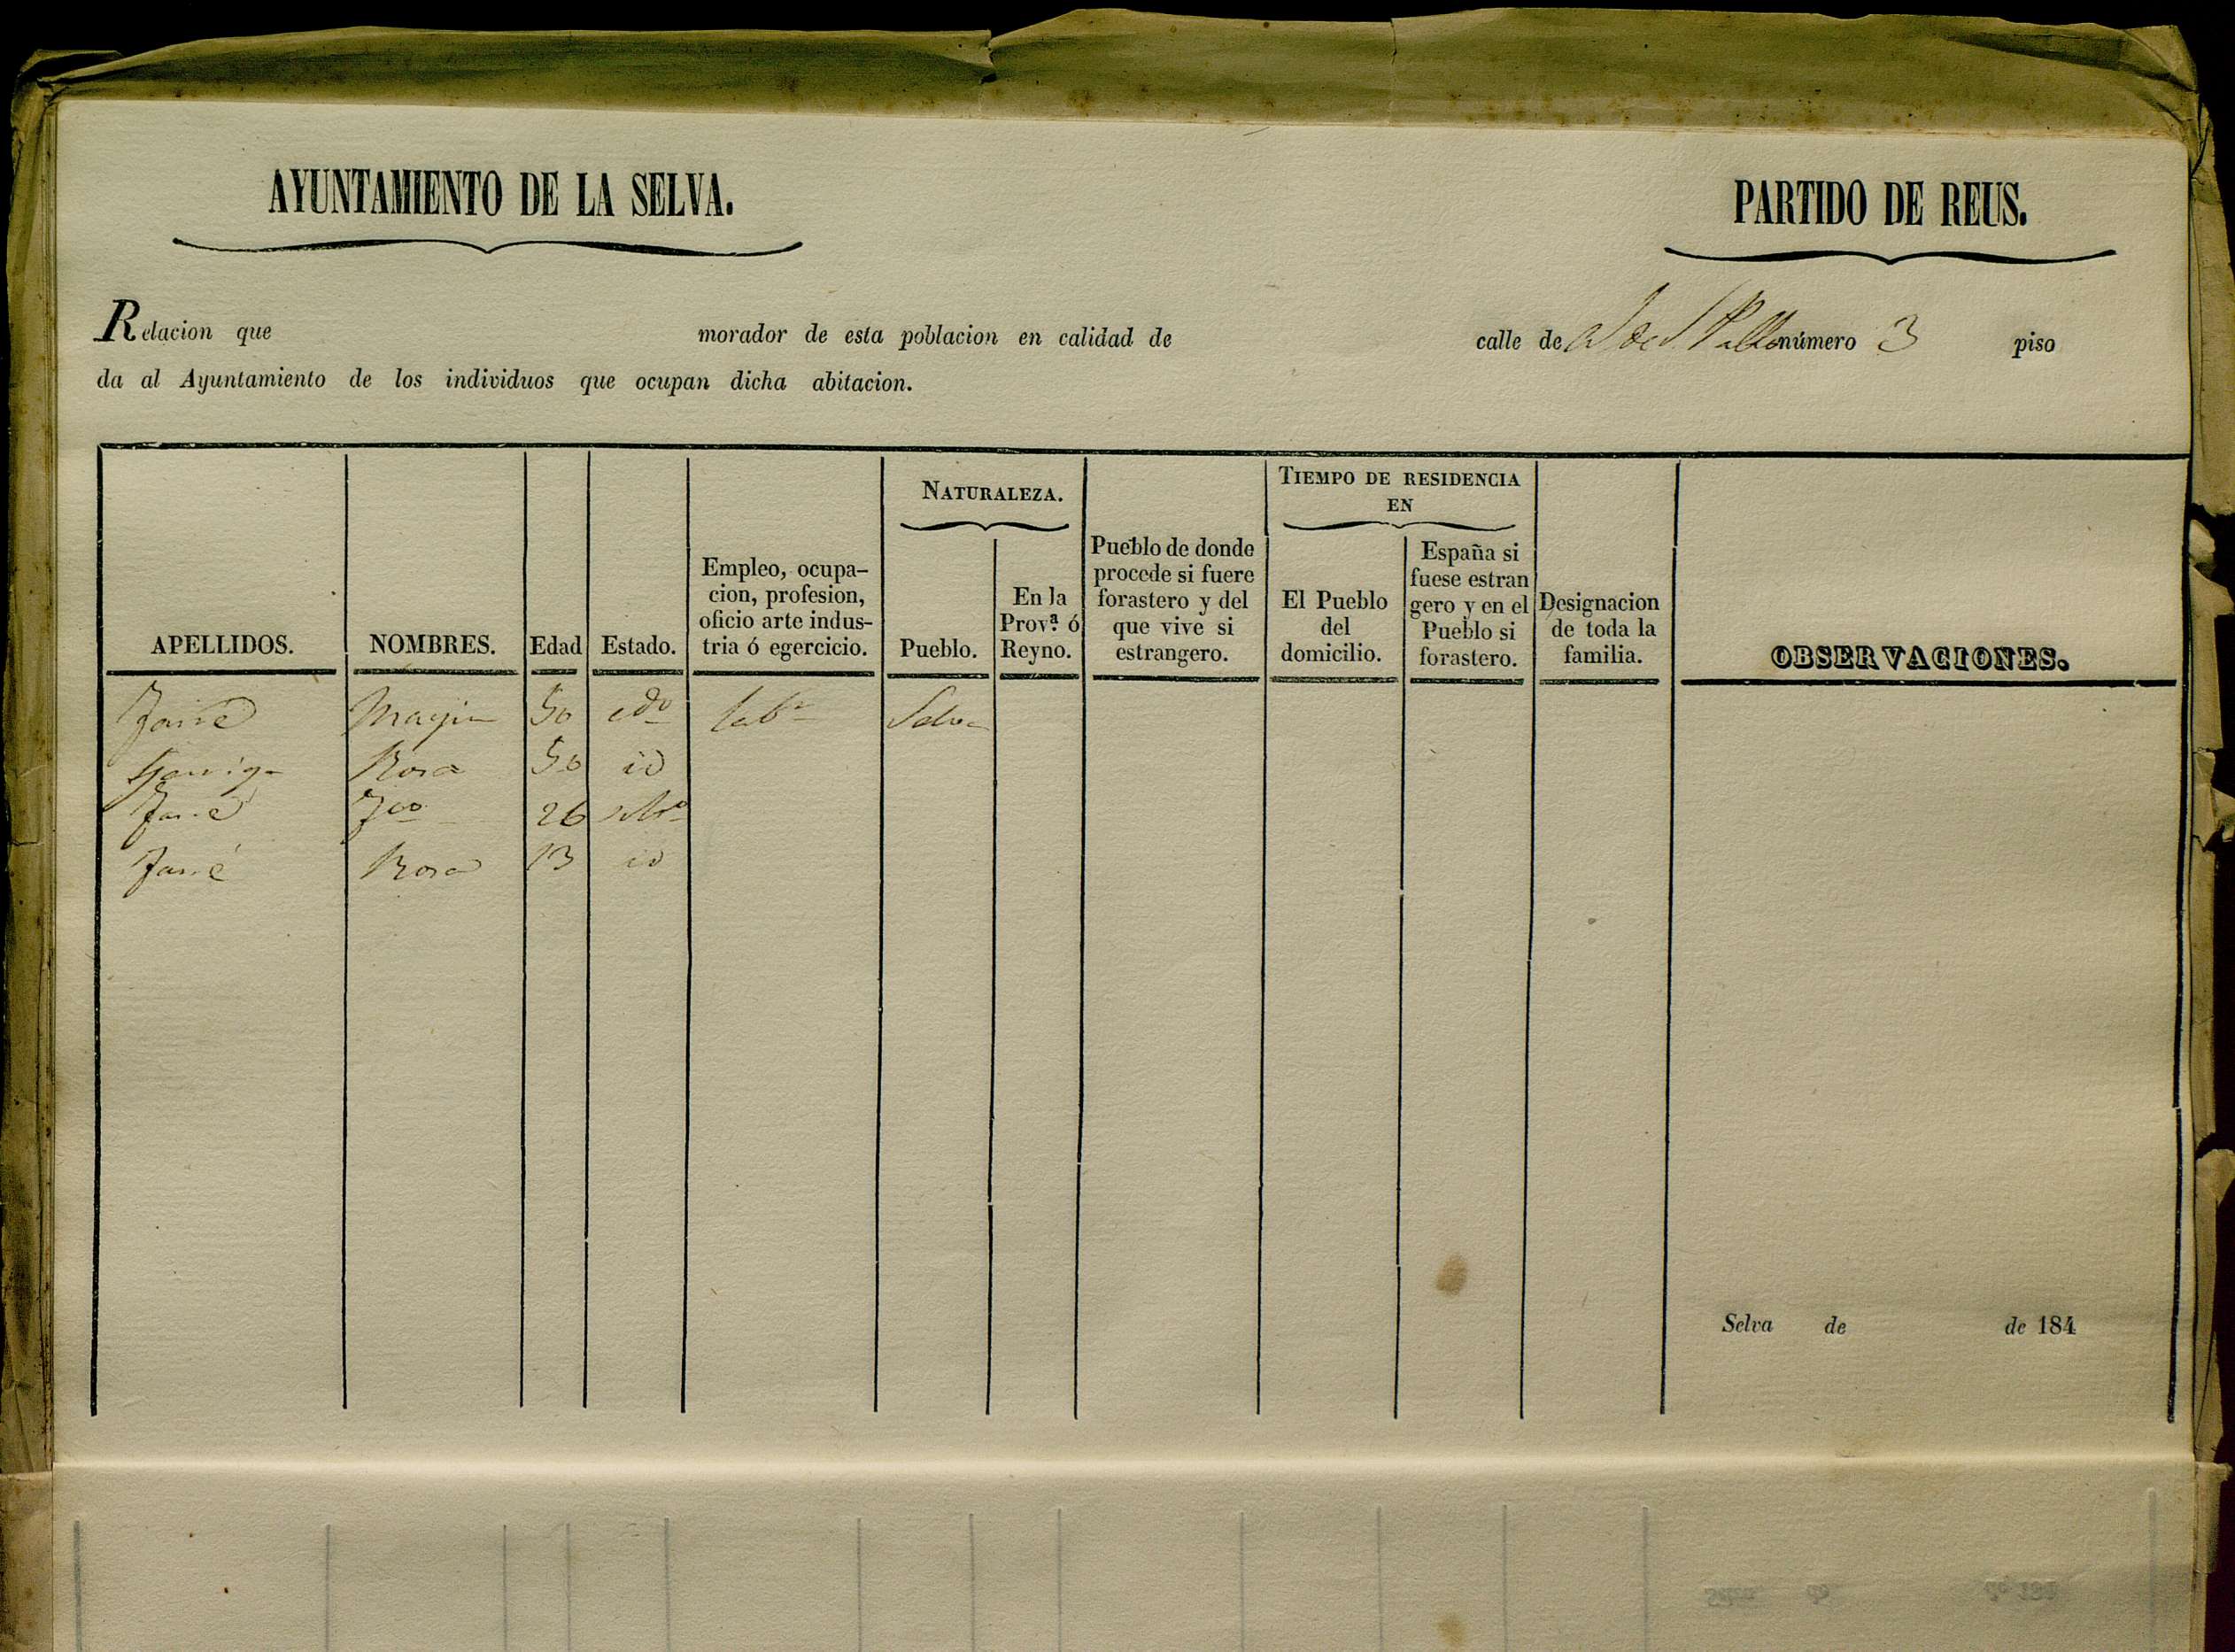 AYUNTAMIENTO DE LA SELVA.
PARTIDO DE REUS.
Relacion que morador de esta poblacion en calidad de calle de número 3 piso
da al Ayuntamiento de los individuos que ocupan dicha abitacion.
APELLIDOS.
NOMBRES.
Edad
Estado.
Empleo, ocupa-
cion, profesion,
oficio arte indus-
tria ó egercicio.
NATURALEZA.
Pueblo.
En la
Prov.ª ó
Reyno.
Pueblo de donde
procede si fuere
forastero y del
que vive si
estrangero.
TIEMPO DE RESIDENCIA
EN
El Pueblo
del
domicilio.
España si
fuese estran
gero y en el
Pueblo si
forastero.
Designacion
de toda la
familia.
OBSERVACIONES.
Magin 50 labr Selva
Rosa 50 id
26
Rosa 13 id
Selva de de 184